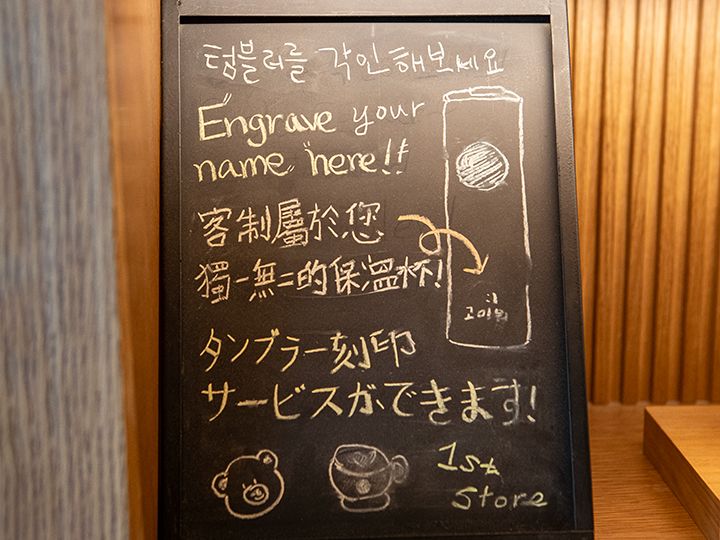 텀블러를 각인해보세요
"Engrave your
name" here!!
客制屬於您
獨一無二的保溫杯!
タンブラー刻印
サービスができます!
1st
Store